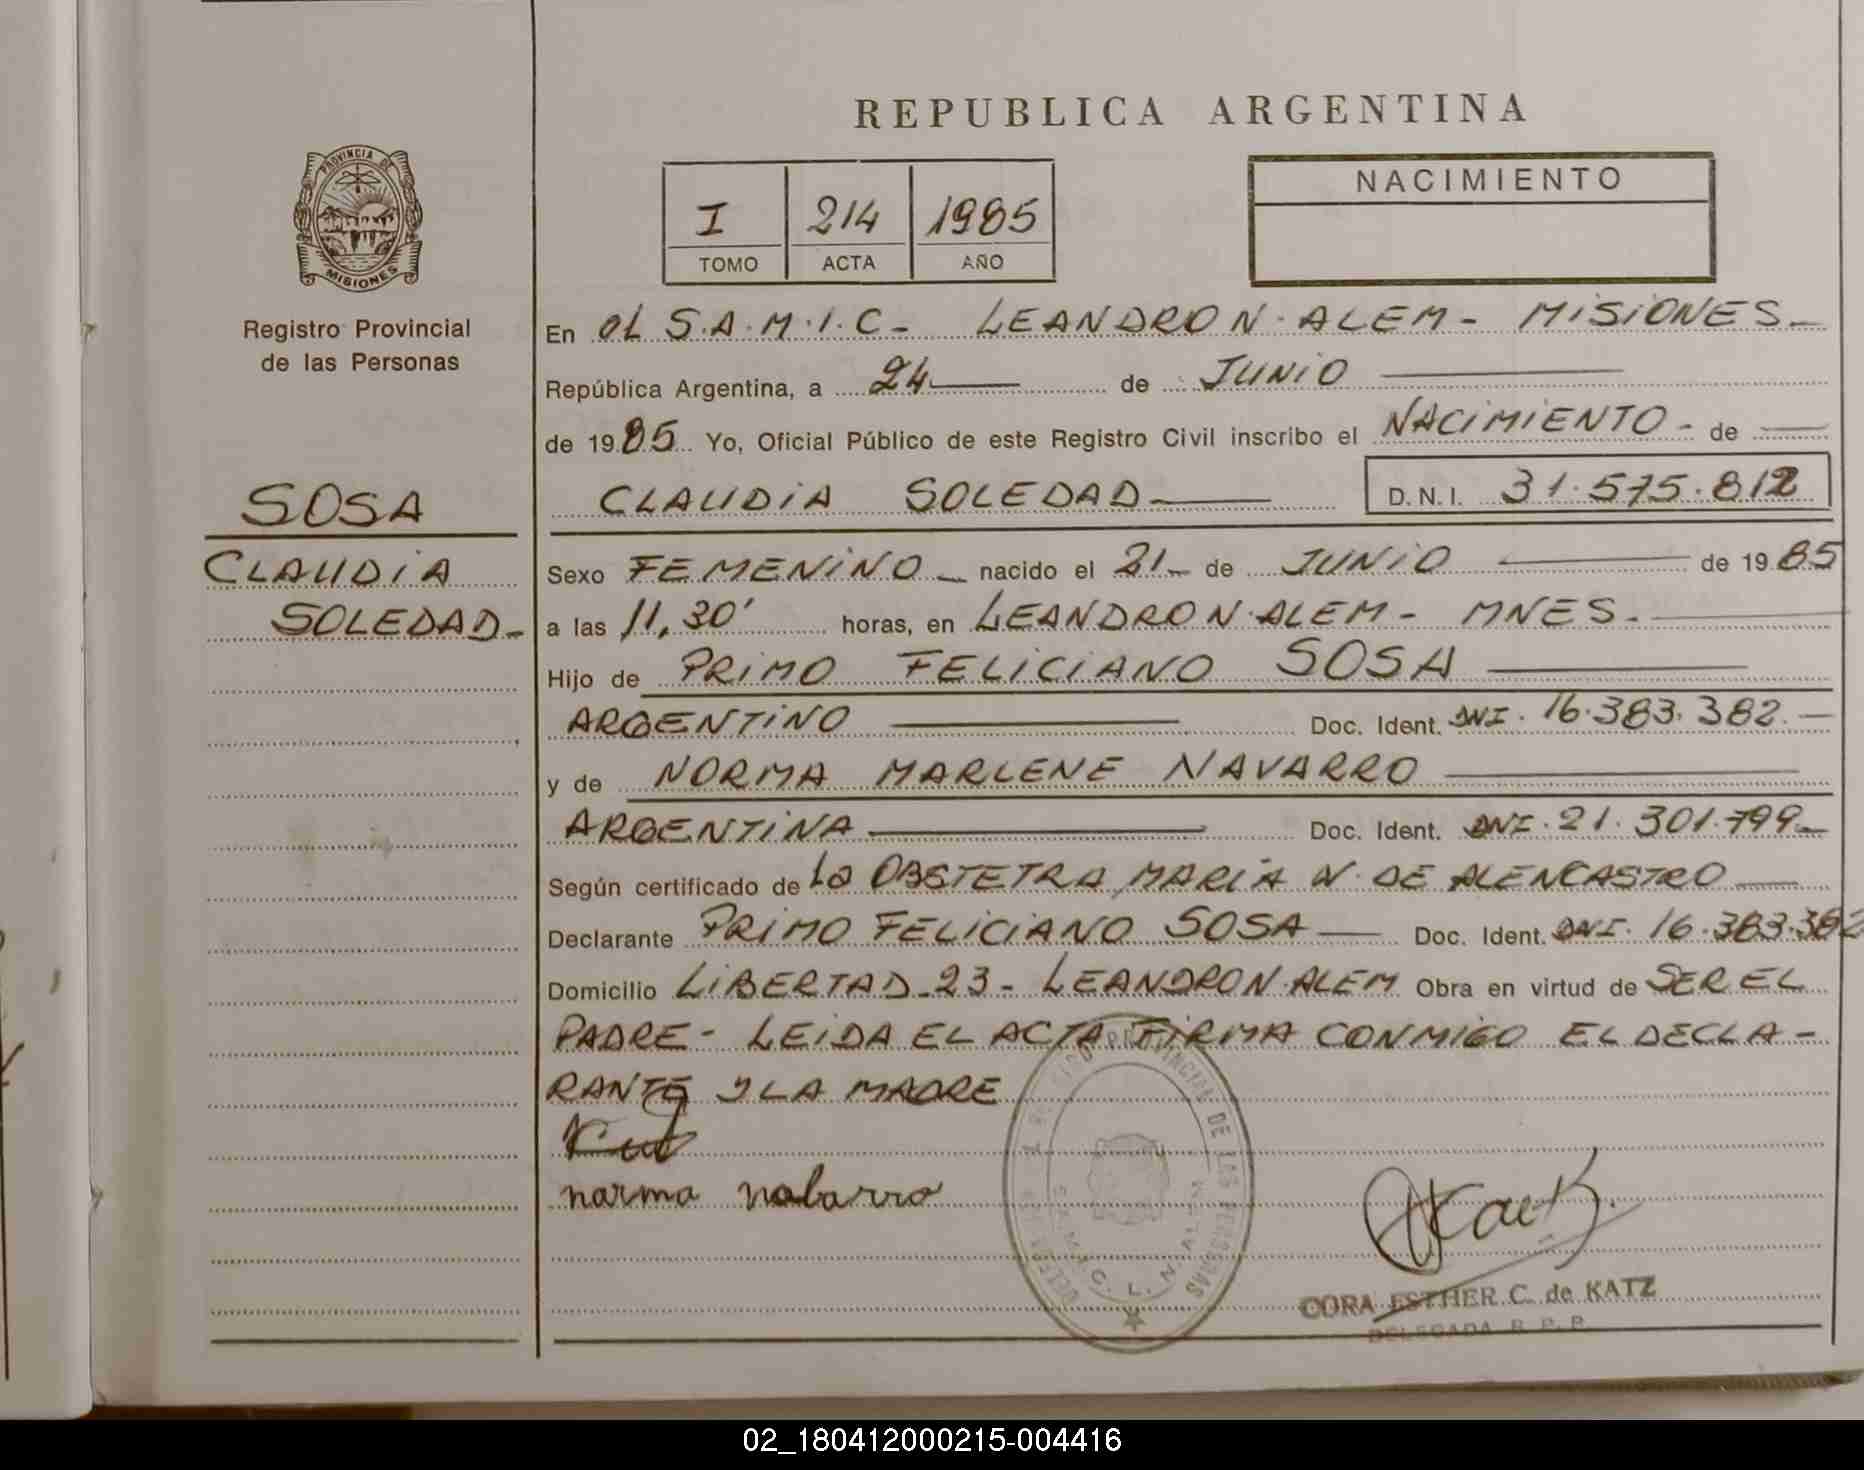 REPUBLICA ARGENTINA
PROVINCIA DE
MISIONES
Registro Provincial
de las Personas
I 214 1985
TOMO ACTA AÑO
NACIMIENTO
En el S.A.M.I.C- LEANDRO N. ALEM - MISIONES-
República Argentina, a 24 de JUNIO
de 19 85 Yo, Oficial Público de este Registro Civil inscribo el NACIMIENTO - de
CLAUDIA SOLEDAD D.N.I. 31.575.812
SOSA
CLAUDIA
SOLEDAD-
Sexo FEMENINO - nacido el 21 - de JUNIO de 19 85
a las 11,30' horas, en LEANDRO N. ALEM - MNES.
Hijo de PRIMO FELICIANO SOSA
ARGENTINO Doc. Ident. DNI. 16.383.382.-
y de NORMA MARLENE NAVARRO
ARGENTINA Doc. Ident. DNI. 21.301.799-
Según certificado de la OBSTETRA MARIA N. DE ALENCASTRO
Declarante PRIMO FELICIANO SOSA Doc. Ident. DNI. 16.383.382
Domicilio LIBERTAD-23- LEANDRO N. ALEM Obra en virtud de SER EL
PADRE - LEIDA EL ACTA FIRMA CONMIGO EL DECLA-
RANTE Y LA MADRE
norma nabarro
PROVINCIAL DE LAS PERSONAS
L. N. ALEM
CORA ESTHER C. de KATZ
DELEGADA R. P. P.
02_180412000215-004416